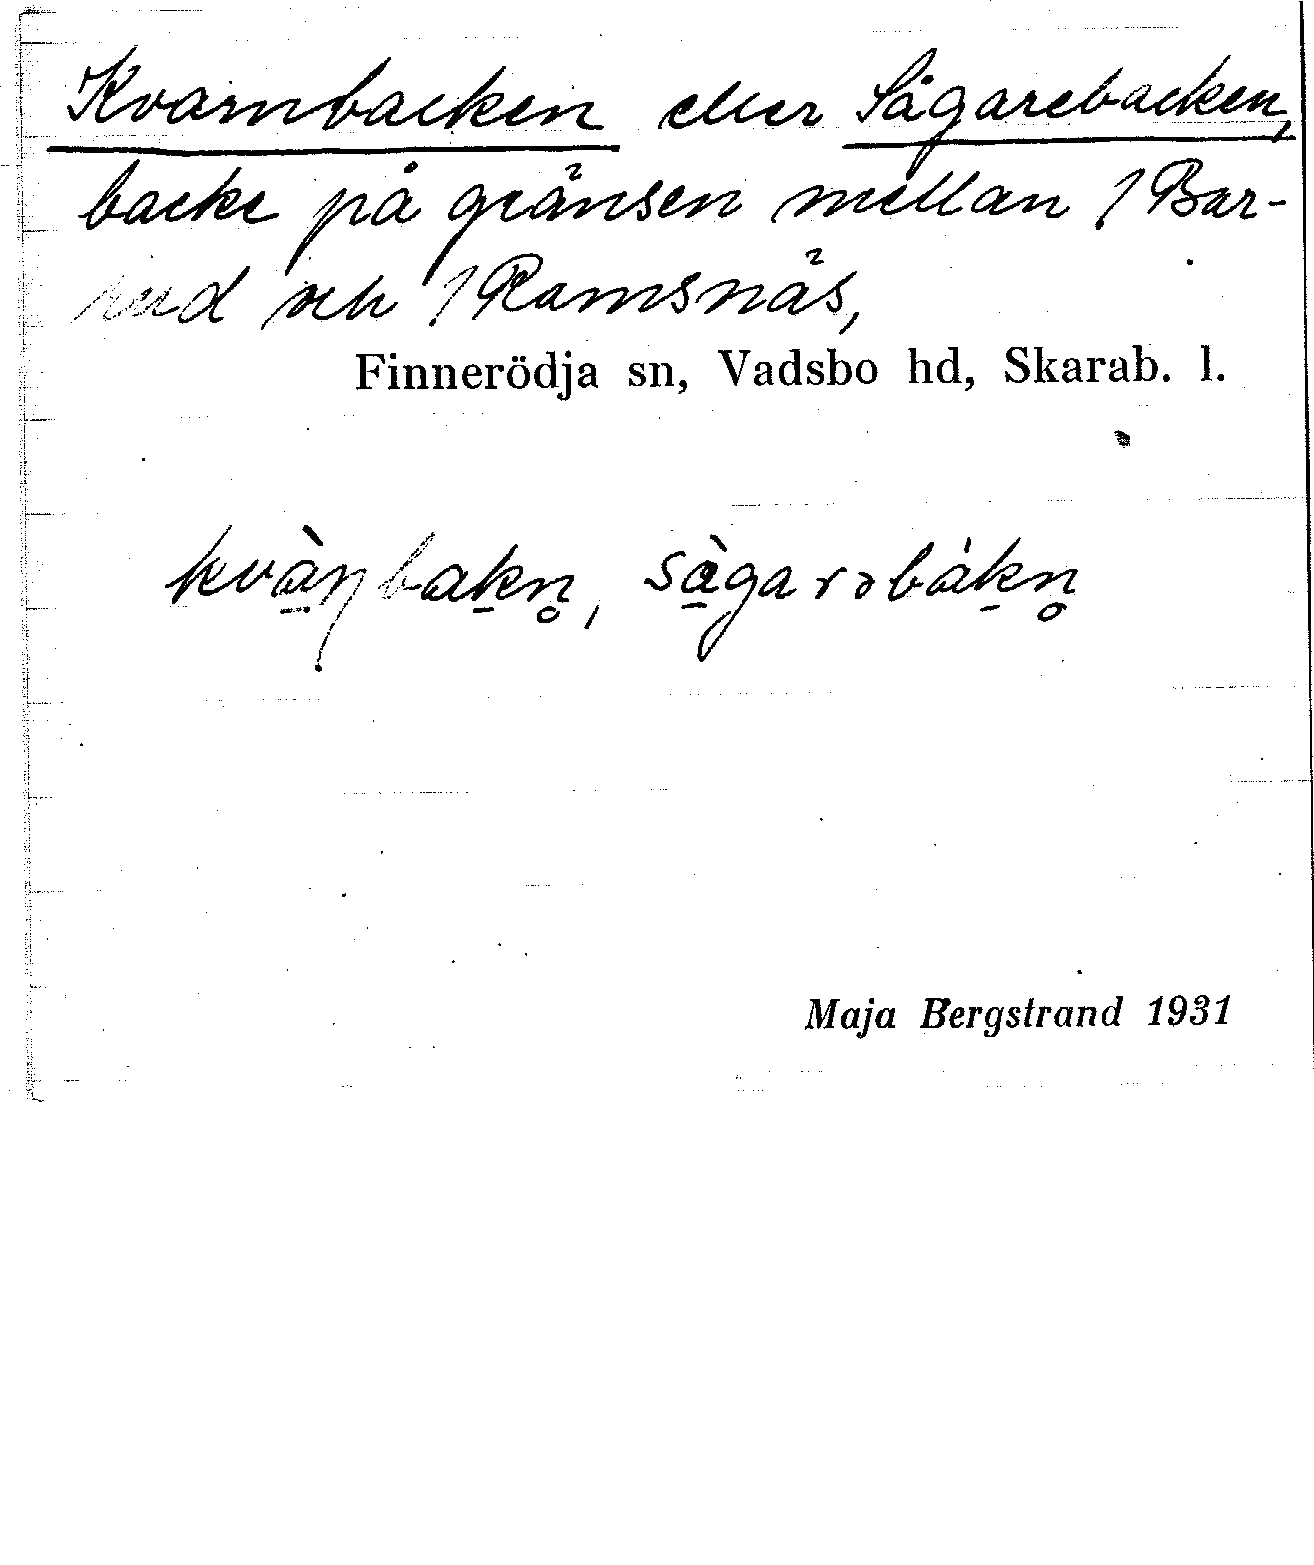 Kvarnbacken eller Sågarebacken,
backe på gränsen mellan 1 Bar-
rud och 1 Ramsnäs,
Finnerödja sn, Vadsbo hd, Skarab. l.
kvàṇbakn̥, sàgarəbàkn̥
Maja Bergstrand 1931